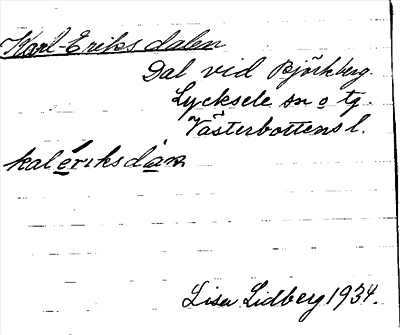 Karl-Eriks dalen
Dal vid Björkberg.
Lycksele sn o tg.
Västerbottens l.
kalériksdàn
Lisa Lidberg 1934.